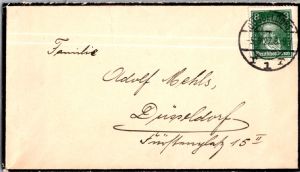 Familie
Adolf Mehls,
Düsseldorf
Fürstenplatz 15 II
8
Deutsches Reich